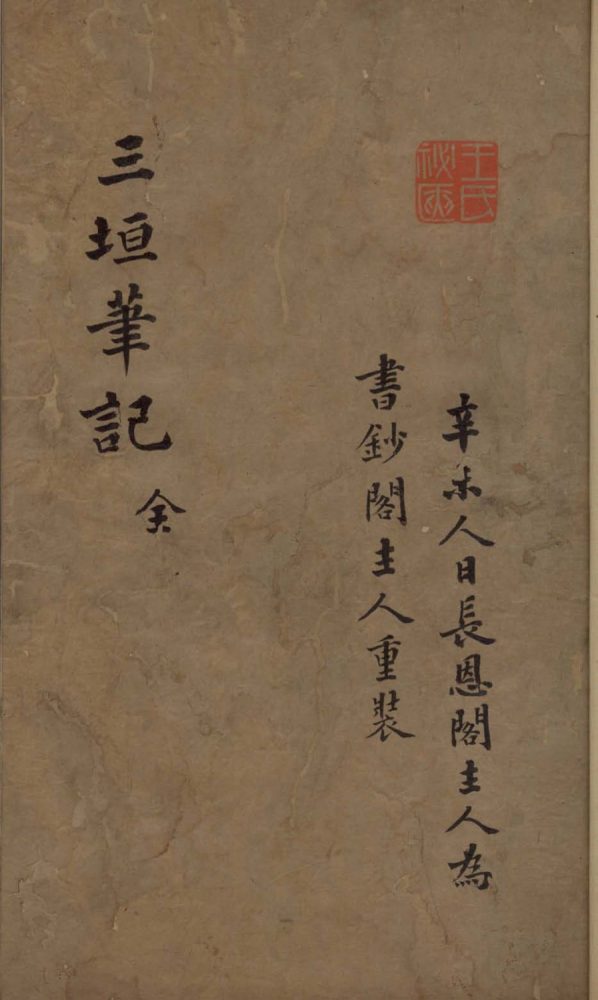 王氏
祕匧
辛未人日長恩閣主人為
書鈔閣主人重裝
三垣筆記
全